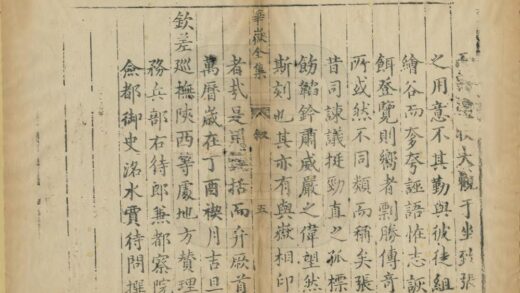 大觀于坐張
之用意不其勤與彼徒組
繪谷而奓夸誣語恠志詼
餌覽則嚮者剽勝傳奇
所或然不同類而稱矣張
昔司諫議挺勁直之孤標
飭韜鈐肅威嚴之偉望然
斯刻也其亦有與嶽相印
華嶽全集 敘 五
者哉是括而弁厥首
萬曆歲在丁酉禊月吉旦
欽差巡撫陝西等處地方贊理
務兵部右侍郎兼都察院
僉都御史洛水賈待問撰